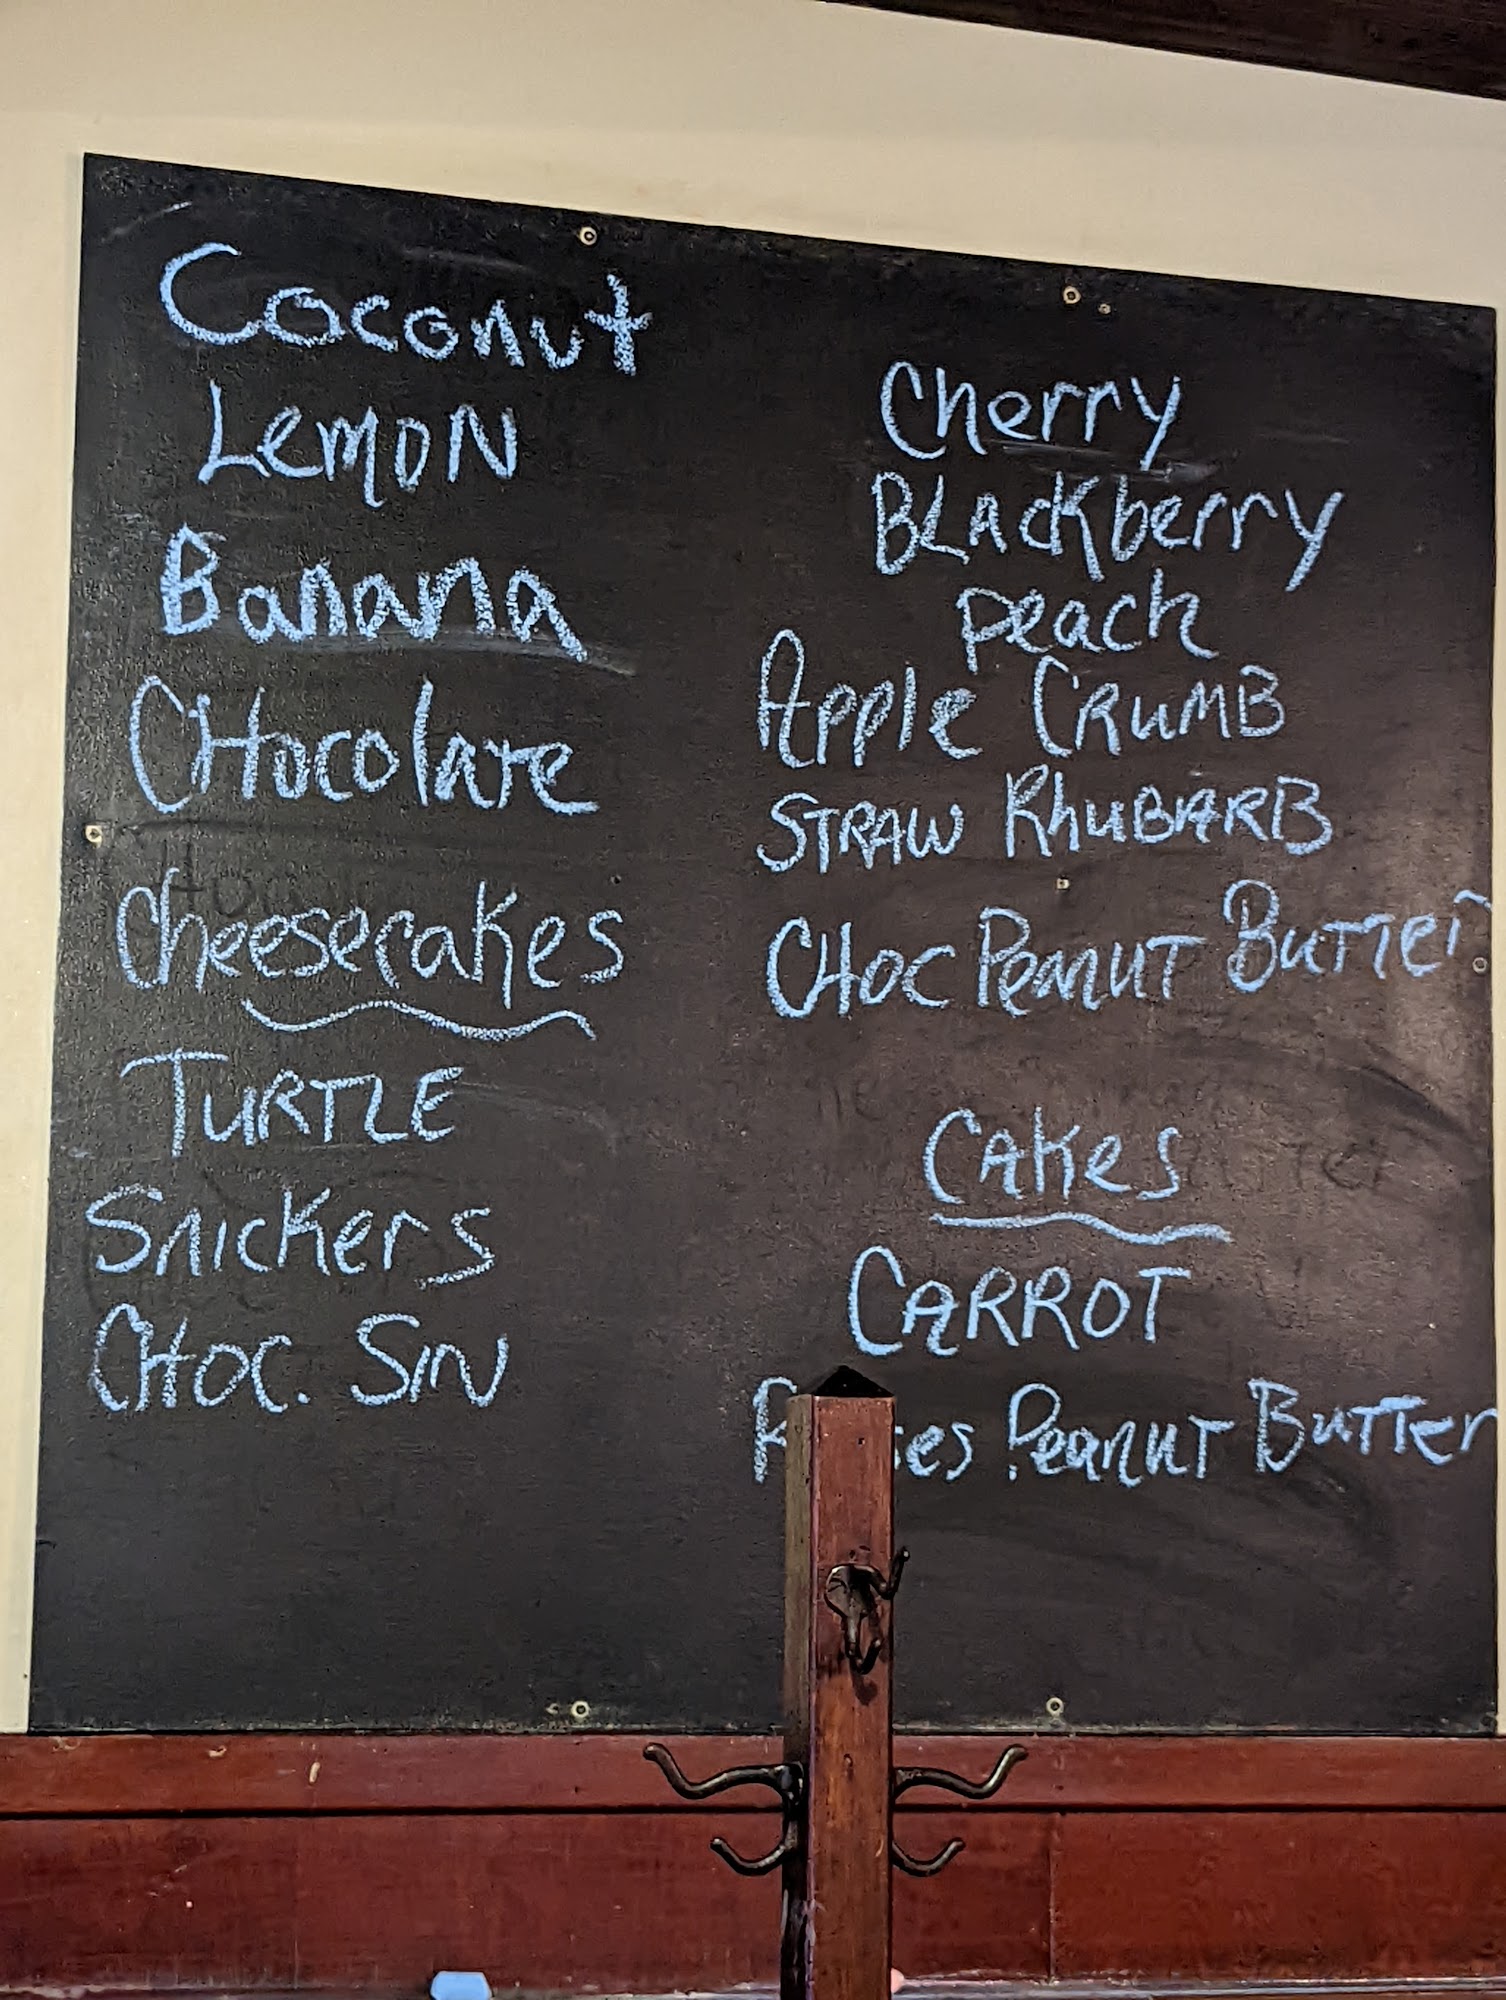 Coconut
Lemon
Banana
Chocolate
Cheesecakes
Turtle
Snickers
Choc. Sin
Cherry
Blackberry
Peach
Apple Crumb
Straw Rhubarb
Choc Peanut Butter
Cakes
Carrot
Peanut Butter